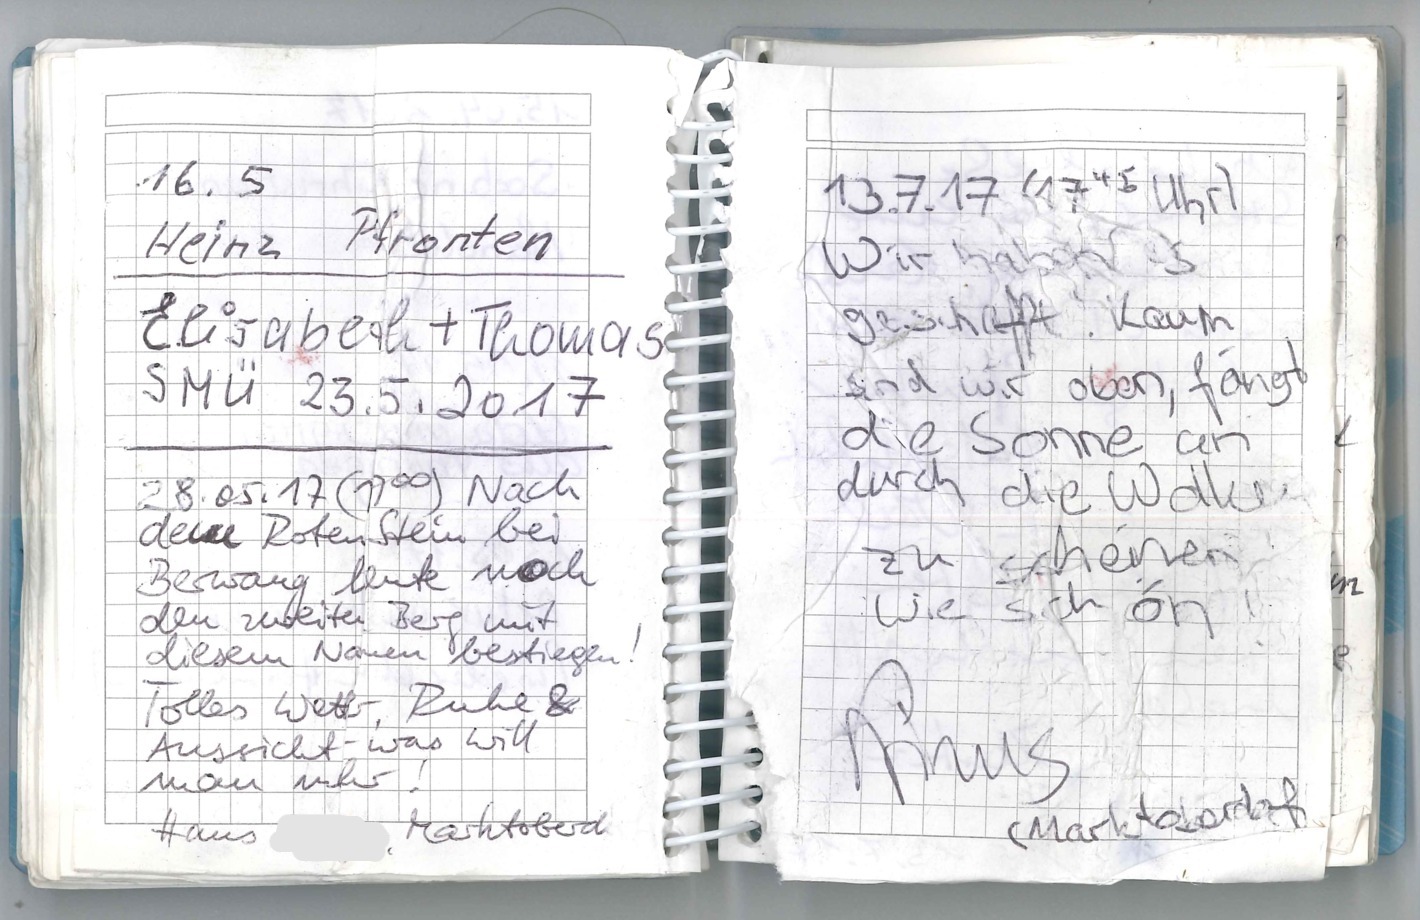 16. 5
Heinz Pfronten
Elisabeth + Thomas
SMÜ 23.5.2017
28.05.17 (17⁰⁰) Nach
dem Rotenstein bei
Berwang heute noch
den zweiten Berg mit
diesem Namen bestiegen!
Tolles Wetter, Ruhe &
Aussicht - was will
man mehr!
Hans , Marktoberd
13.7.17 (17⁴⁵ Uhr)
Wir haben's
geschafft! Kaum
sind wir oben, fängt
die Sonne an
durch die Wolken
zu scheinen
wie schön!
(Marktoberdorf